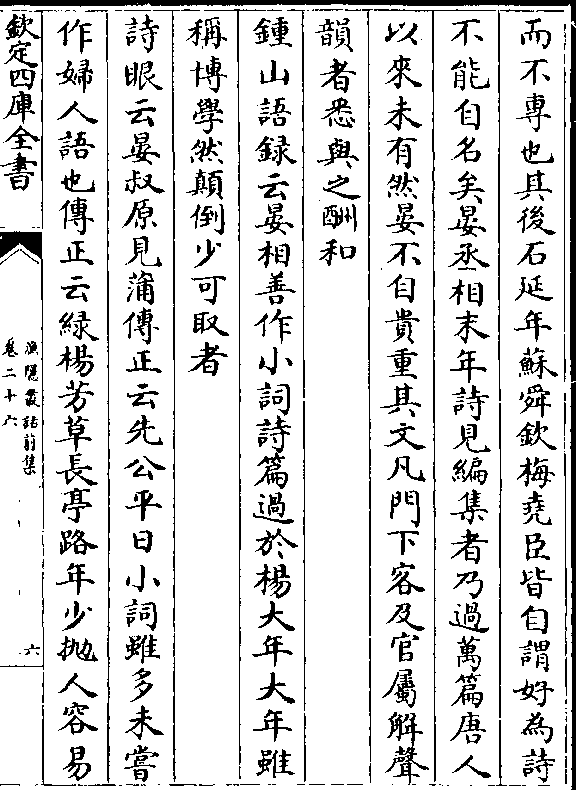 而不專也其後石延年蘇舜欽梅堯臣皆自謂好為詩
不能自名矣晏丞相末年詩見編集者乃過萬篇唐人
以來未有然晏不自貴重其文凡門下客及官屬解聲
韻者悉與之酬和
鍾山語録云晏相善作小詞詩篇過於楊大年大年雖
稱博學然顛倒少可取者
詩眼云晏叔原見蒲傳正云先公平日小詞雖多未嘗
作婦人語也傳正云緑楊芳草長亭路年少抛人容易
欽定四庫全書
漁隱叢話前集
卷二十六
六